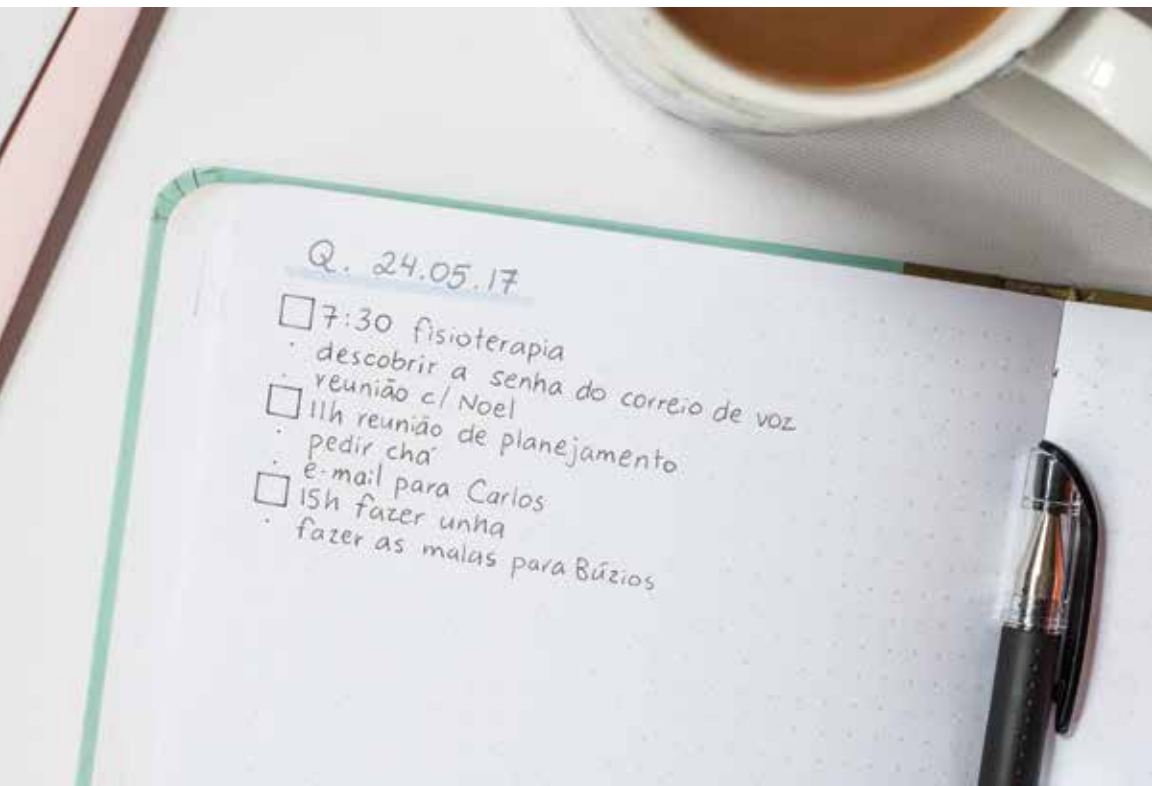 Q. 24.05.17
7:30 fisioterapia
· descobrir a senha do correio de voz
· reunião c/ Noel
11h reunião de planejamento
· pedir chá
· e-mail para Carlos
15h fazer unha
· fazer as malas para Búzios